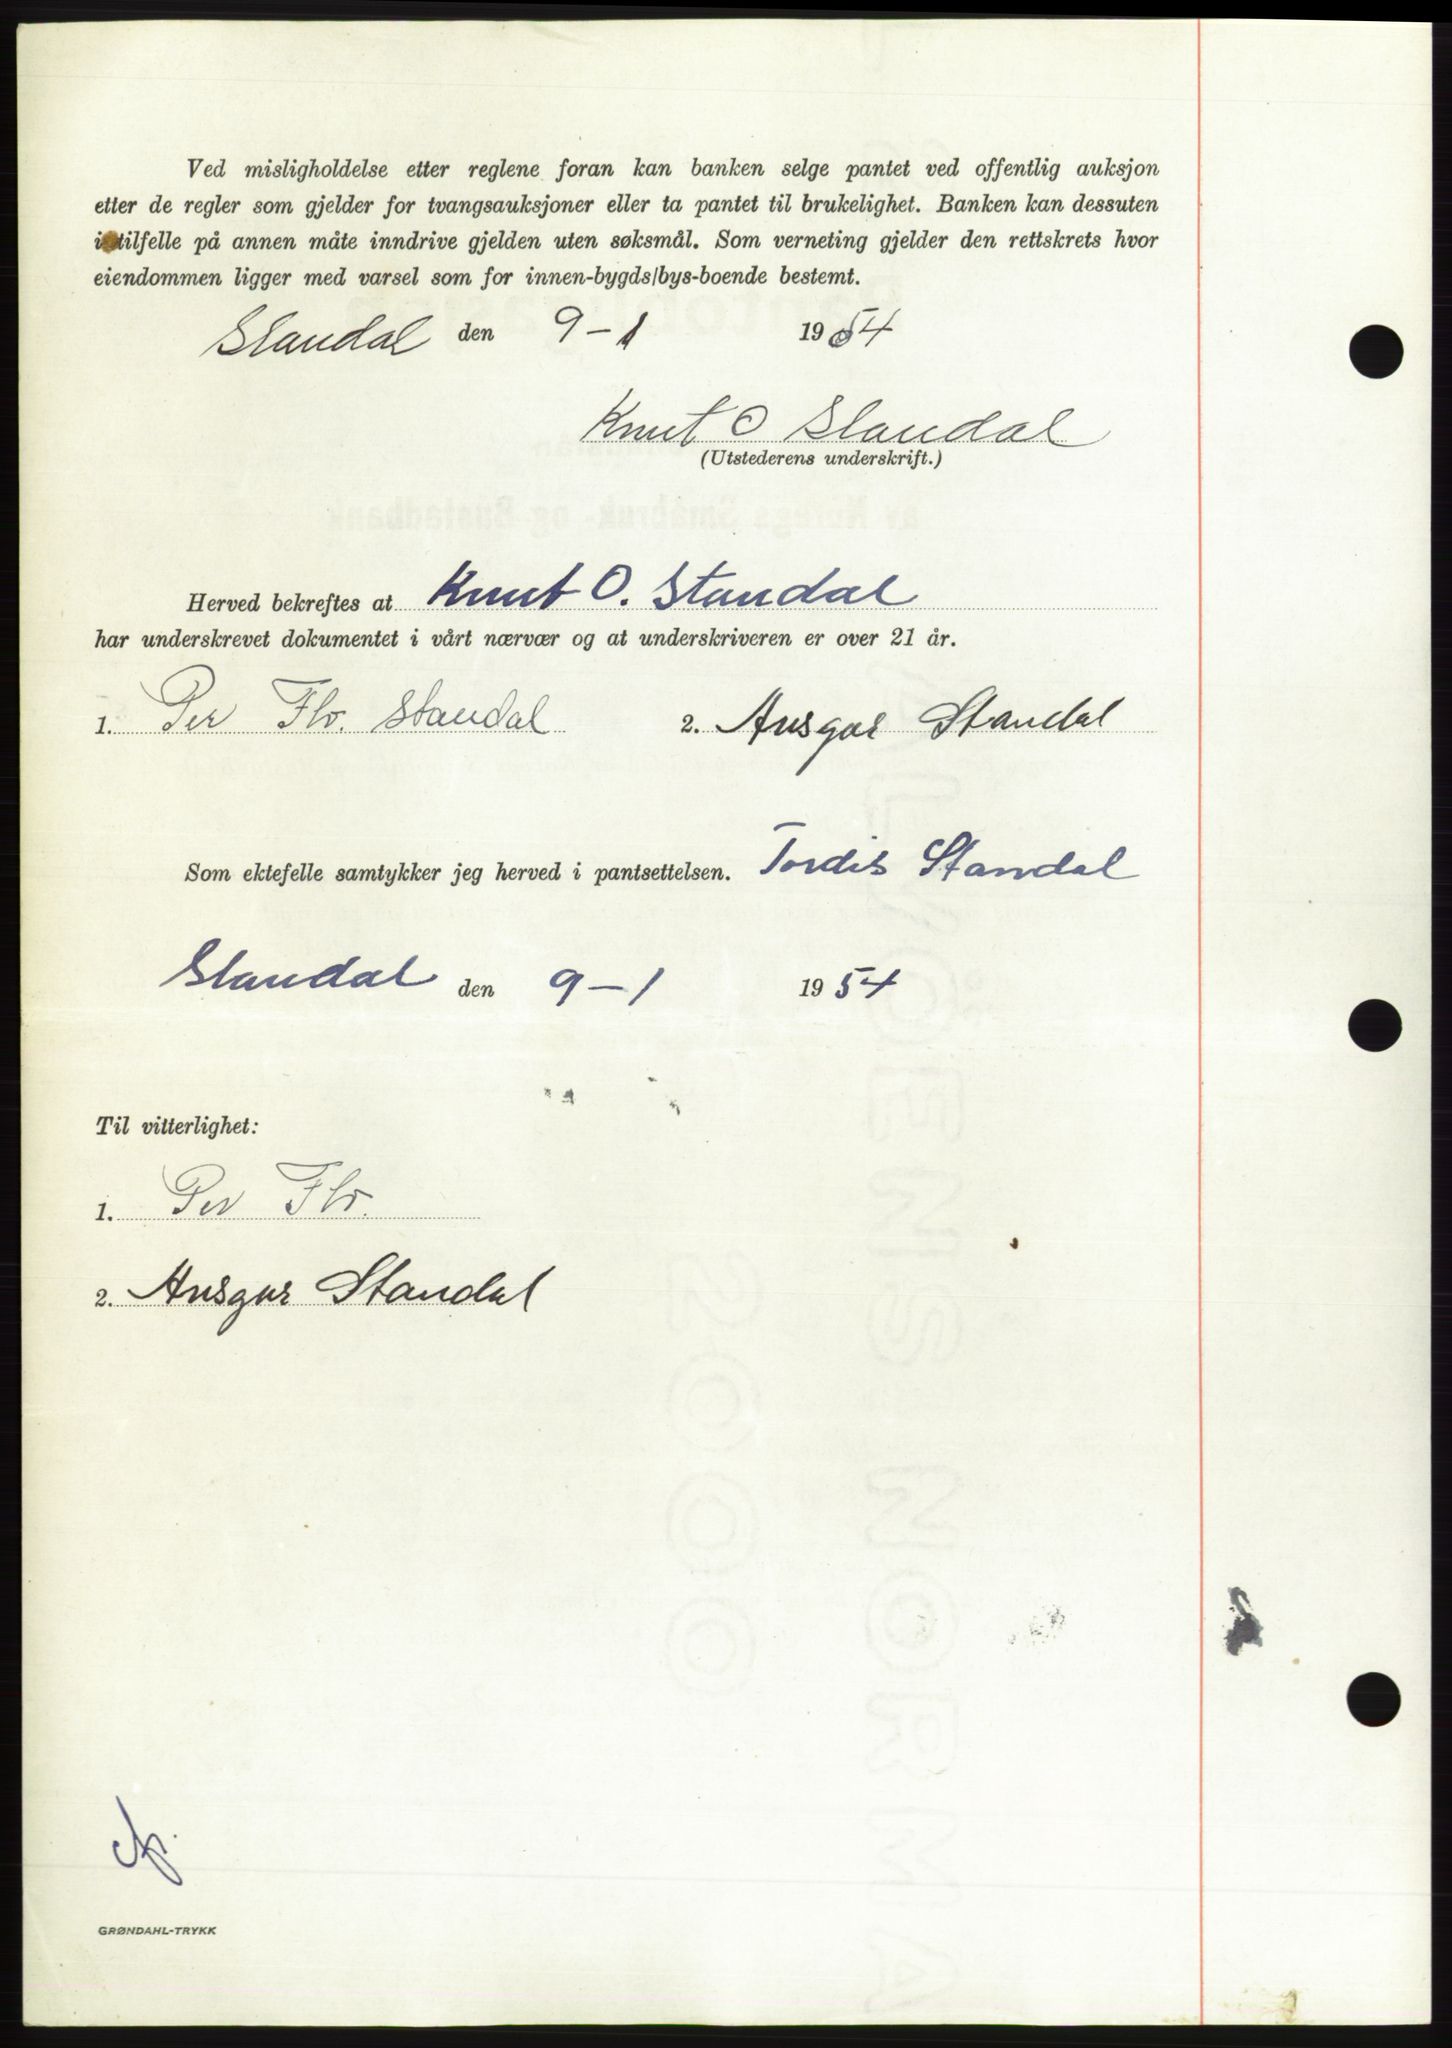 Ved misligholdelse etter reglene foran kan banken selge pantet ved offentlig auksjon
etter de regler som gjelder for tvangsauksjoner eller ta pantet til brukelighet. Banken kan dessuten
i tilfelle på annen måte inndrive gjelden uten søksmål. Som verneting gjelder den rettskrets hvor
eiendommen ligger med varsel som for innen-bygds/bys-boende bestemt.
Standal den 9-1 1954
Knut O Standal
(Utstederens underskrift.)
Herved bekreftes at Knut O. Standal
har underskrevet dokumentet i vårt nærvær og at underskriveren er over 21 år.
1. Per Flo. Standal 2. Ansgar Standal
Som ektefelle samtykker jeg herved i pantsettelsen. Tordis Standal
Standal den 9-1 1954
Til vitterlighet:
1. Per Flo.
2. Ansgar Standal
GRØNDAHL-TRYKK